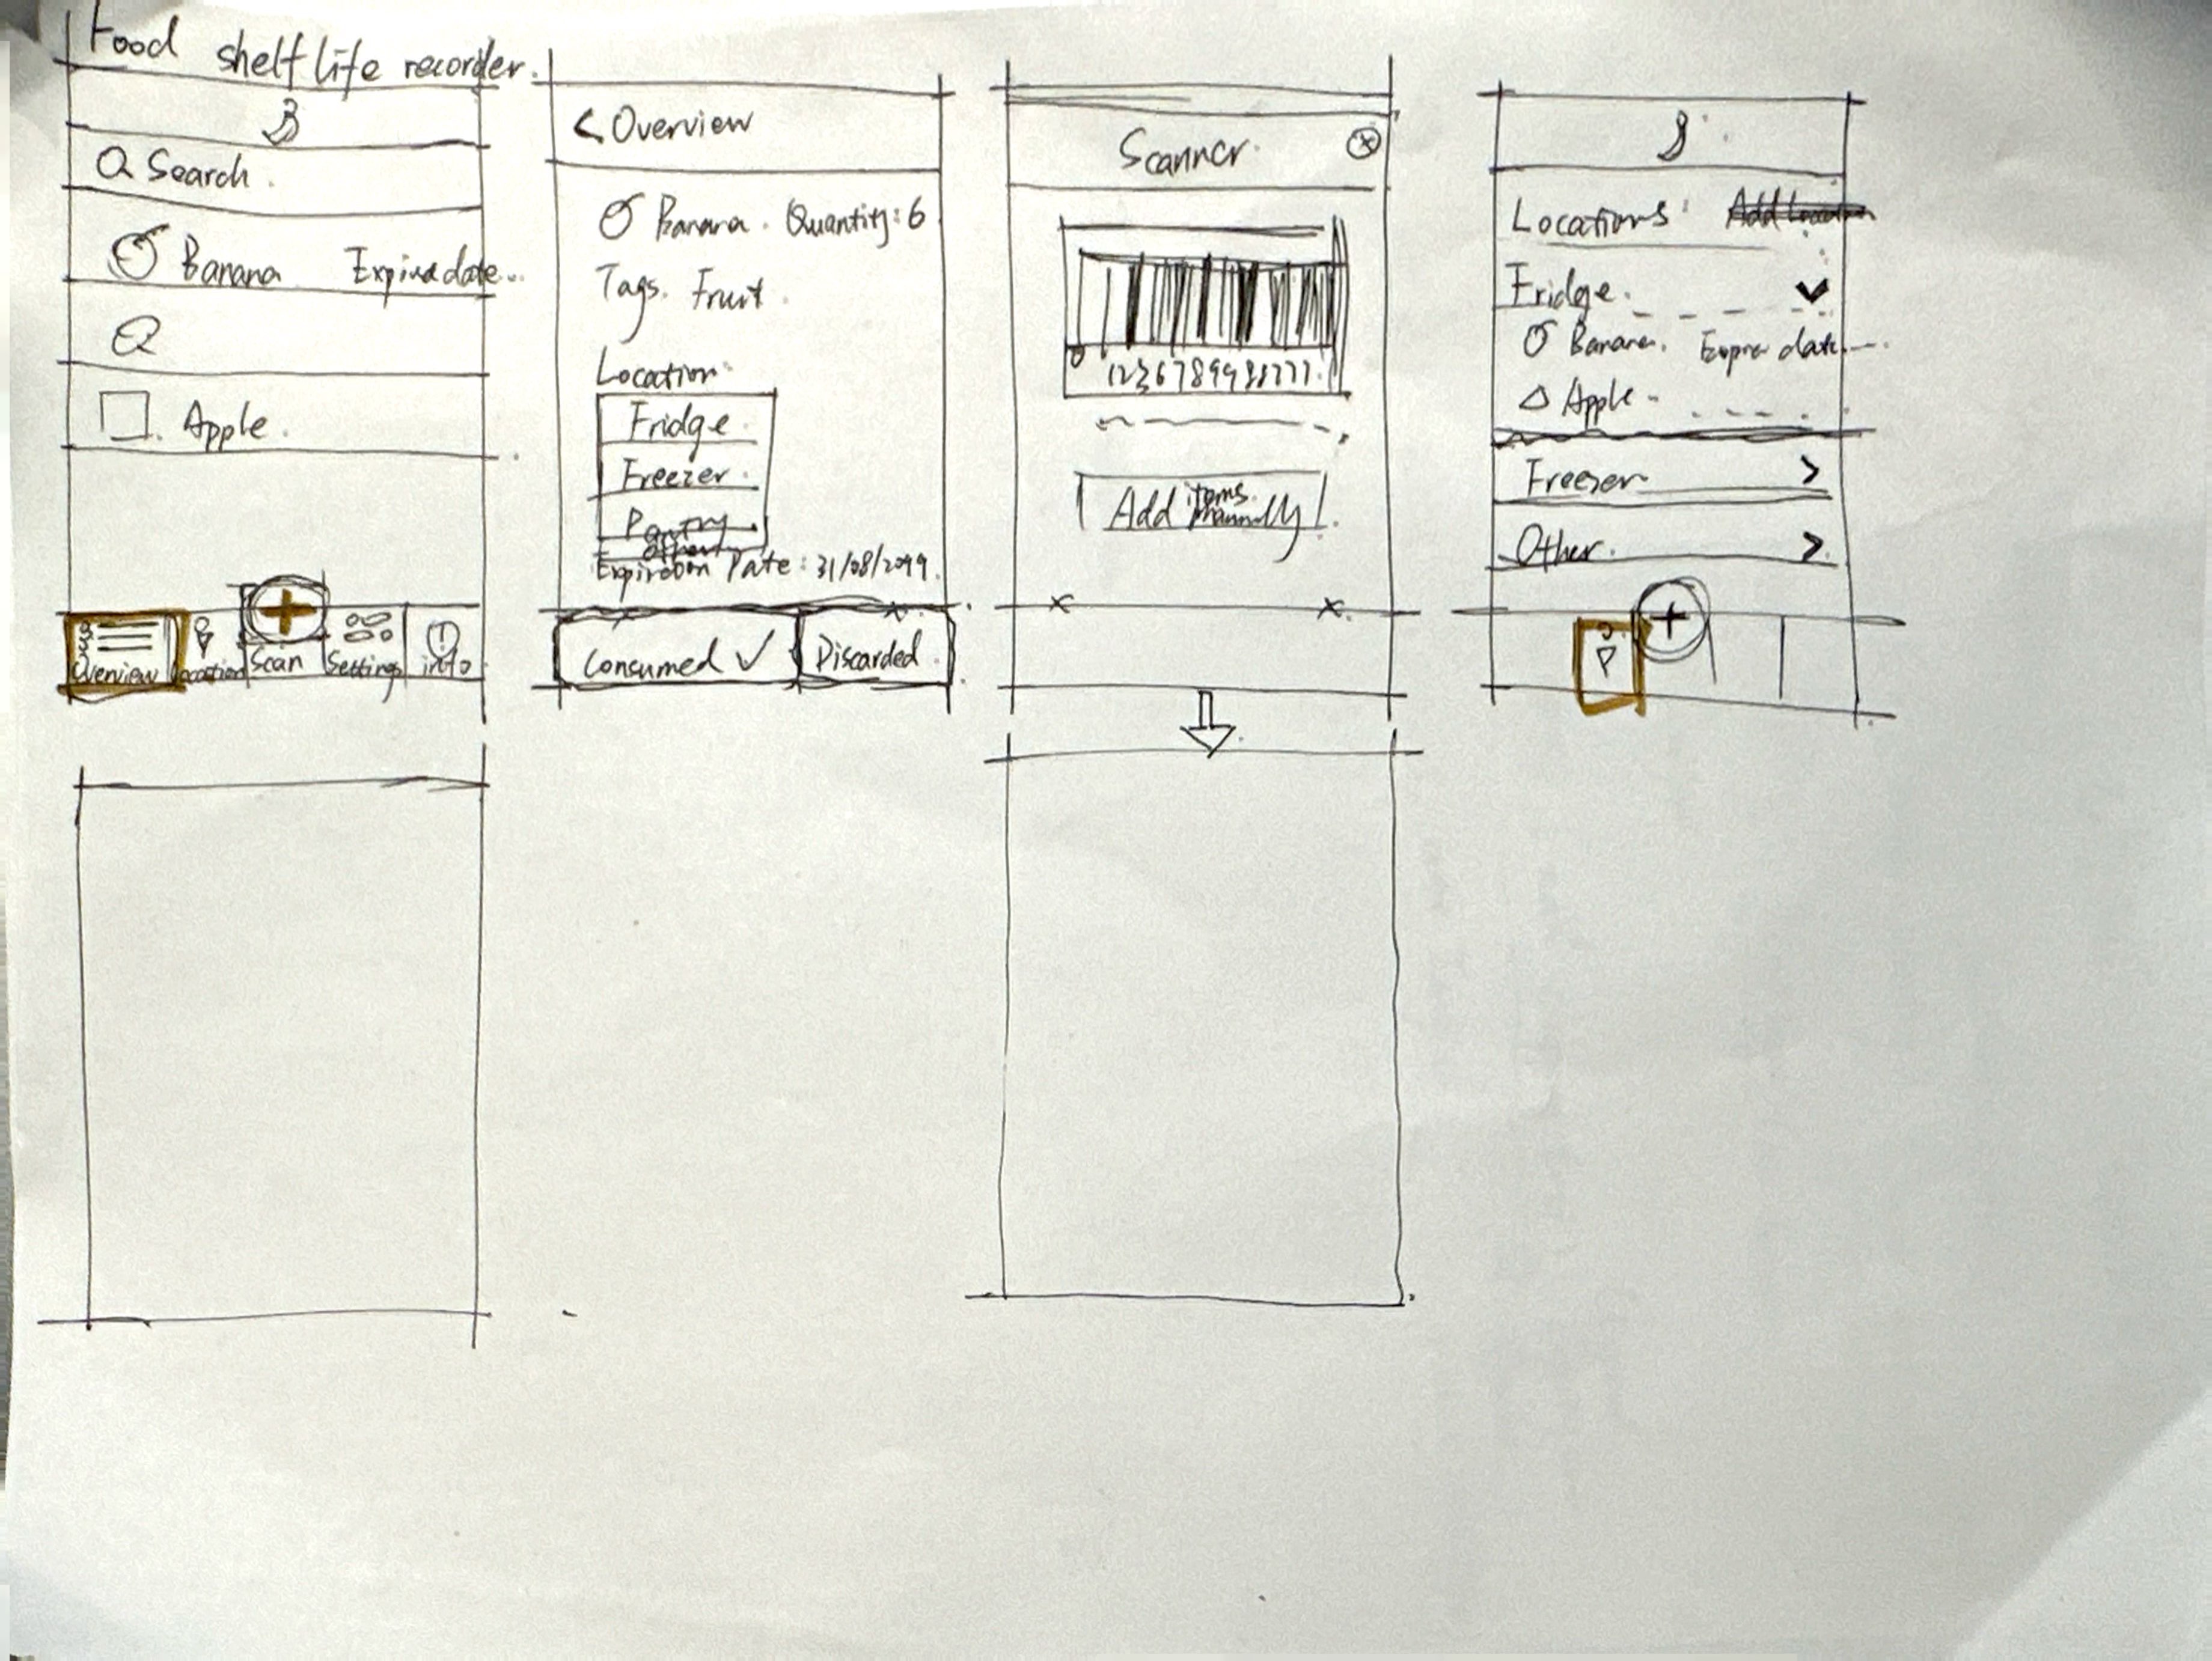 Food shelf life recorder.
Search
Banana Expire date...
Apple.
Overview
Location
Scan
Settings
info
< Overview
Banana. Quantity: 6
Tags. Fruit
Location
Fridge
Freezer
Pantry
other
Expiration Date: 31/08/2099
Consumed ✓
Discarded
Scanner
Add items manually
Locations
Fridge.
Banana. Expire date
Apple
Freezer >
Other. >